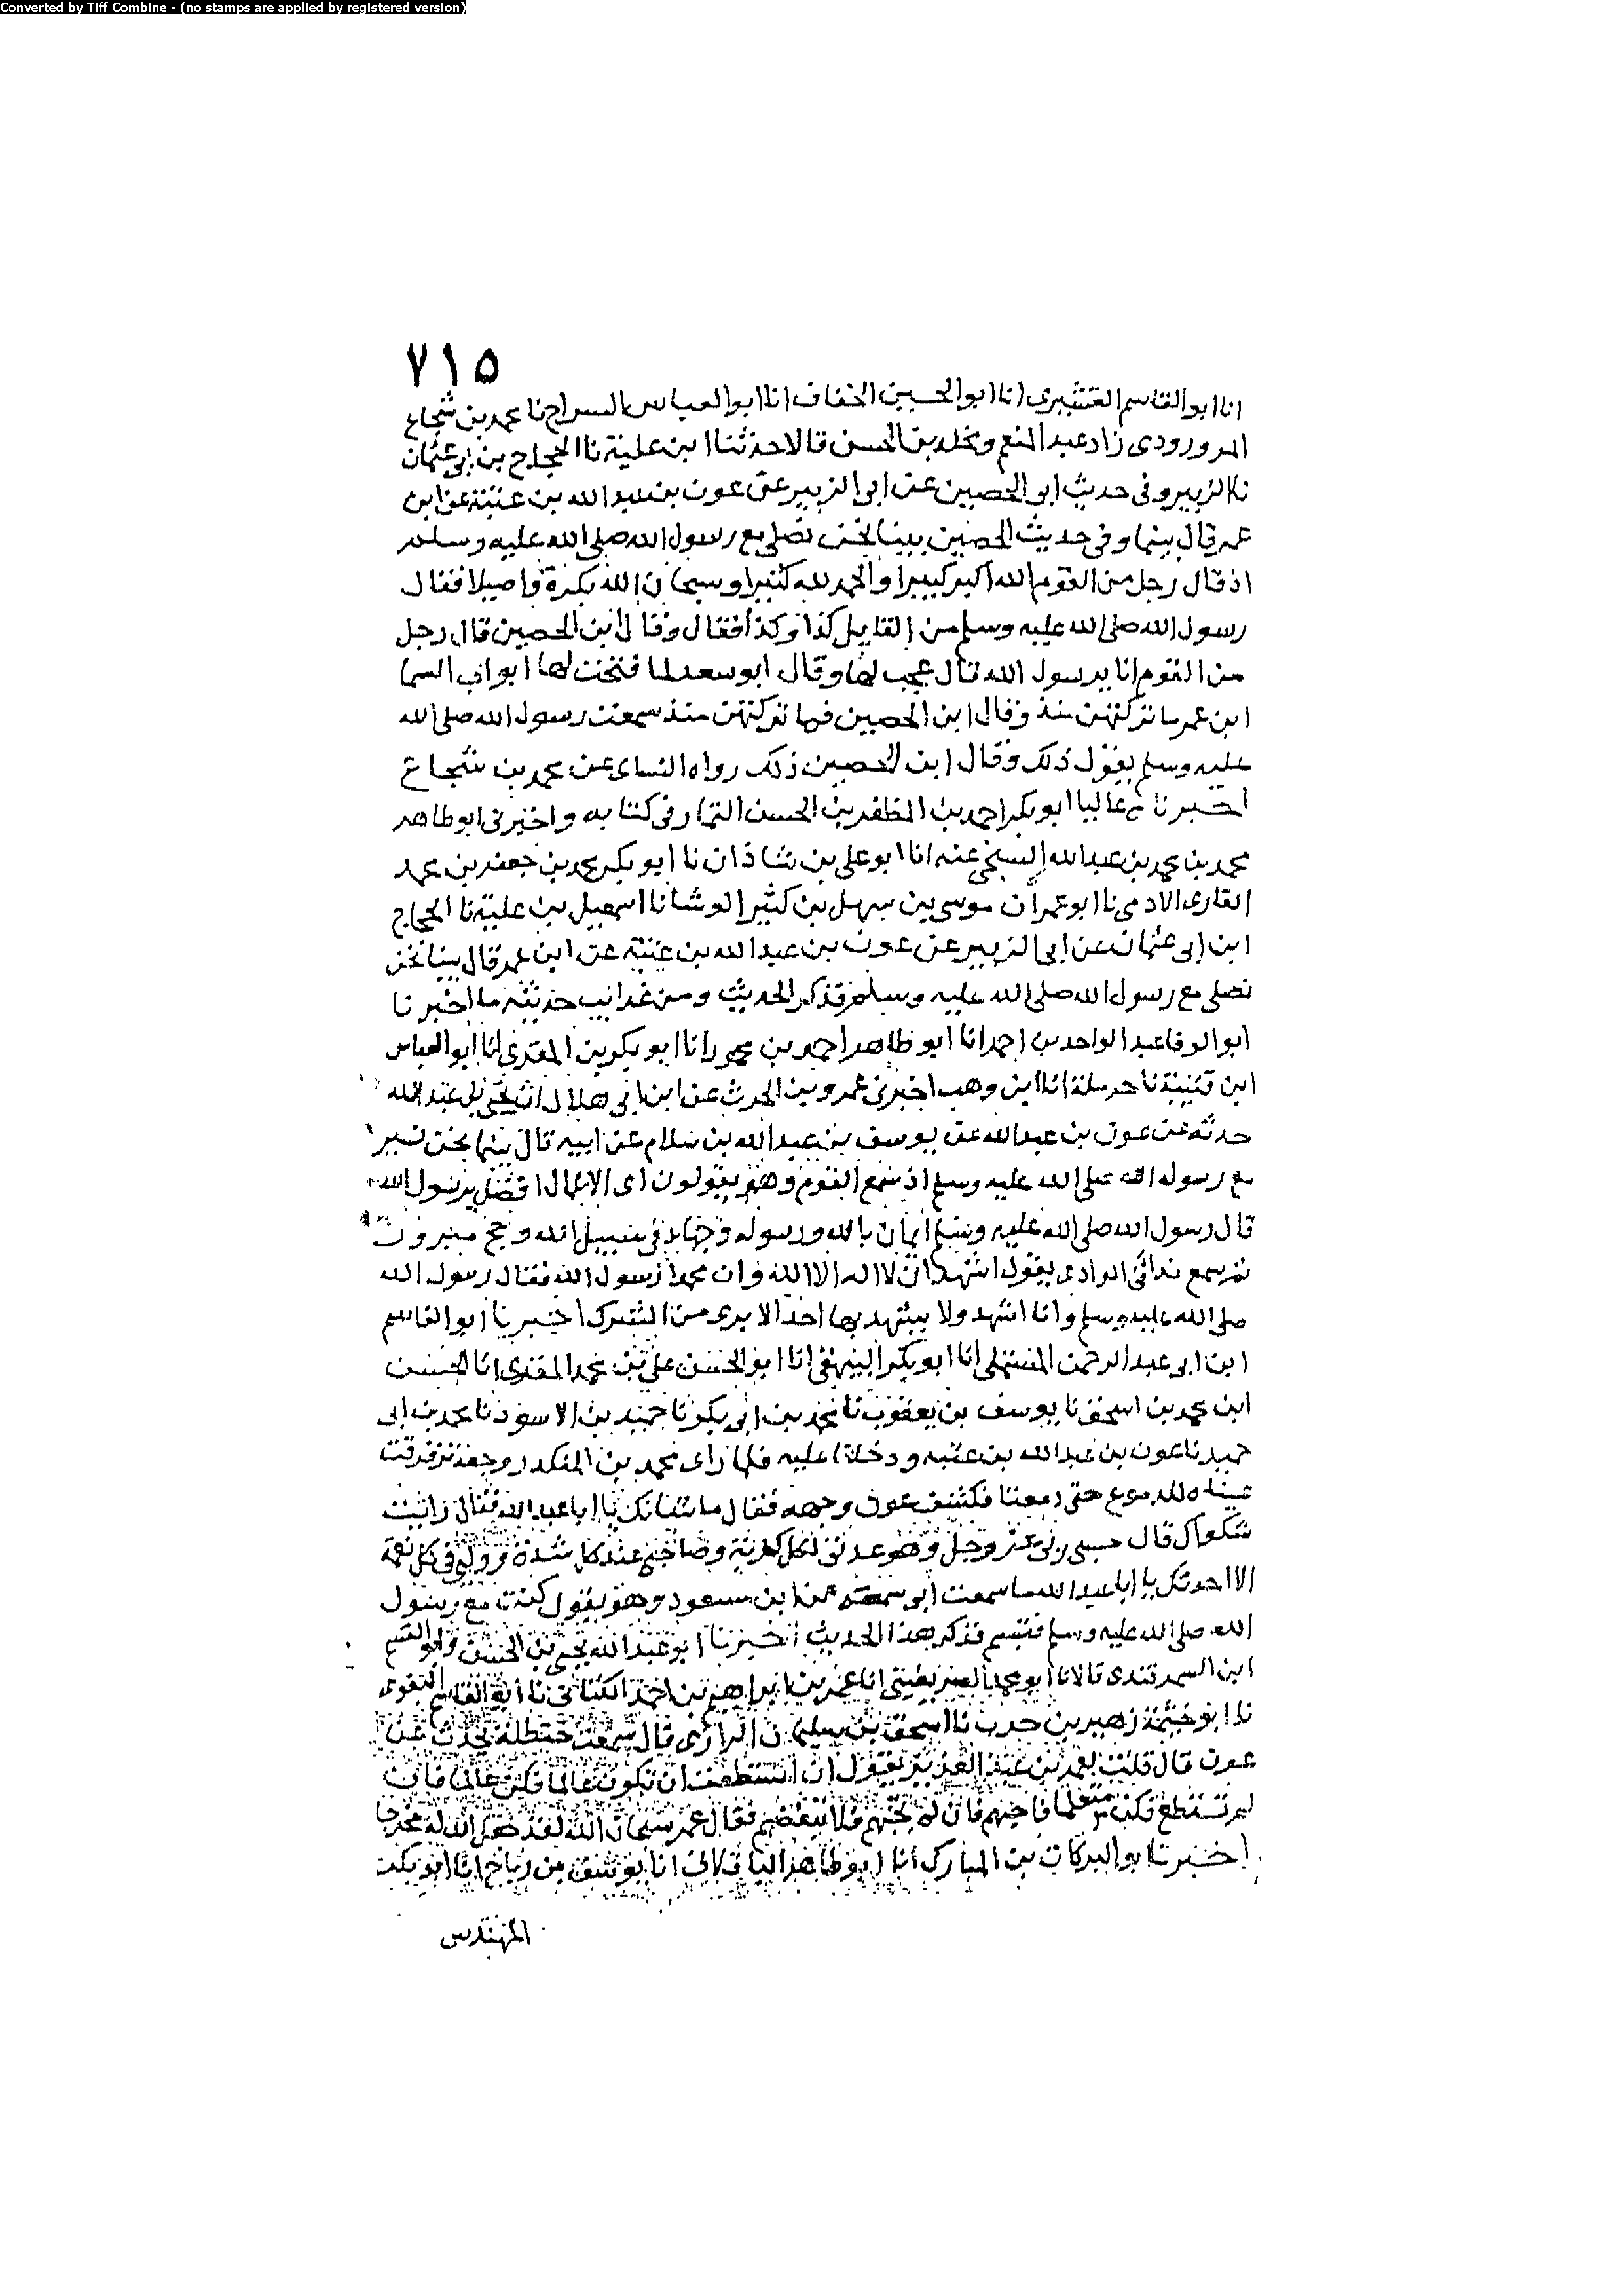 Converted by Tiff Combine - (no stamps are applied by registered version)
٧١٥
انا ابو القاسم القشيرى انا ابو الحسين الخفاف انا ابو العباس السراج نا محمد بن شجاع
المرورودى زاد عبد المنعم ومخلد بن الحسن قالا حدثنا ابن علية نا الحجاج بن ابى عثمان
نا الزبير وفى حديث ابى الحصين عن ابى الزبير عن عون بن عبد الله بن عتبة عن ابن
عمر قال بينما وفى حديث الحصين بينا نحن نصلى مع رسول الله صلى الله عليه وسلم
اذ قال رجل من القوم الله اكبر كبيرا والحمد لله كثيرا وسبحان الله بكرة واصيلا فقال
رسول الله صلى الله عليه وسلم من القايل كذا وكذا فقال وقال ابن الحصين قال رجل
من القوم انا يرسول الله قال عجب لها وقال ابو سعد لما فتحت لها ابواب السما
ابن عمر ما تركتهن منذ وقال ابن الحصين فما تركتهن منذ سمعت رسول الله صلى الله
عليه وسلم يقول ذلك وقال ابن الحصين ذلك رواه النساى عن محمد بن شجاع
اخبرنا عاليا ابو بكر احمد بن المظفر بن الحسن التمار فى كتابه واخبرنى ابو طاهر
محمد بن محمد بن عبد الله السنجى عنه انا ابو على بن شاذان نا ابو بكر محمد بن جعفر بن محمد
القارى الادمى نا ابو عمران موسى بن سهل بن كثير الوشا نا اسمعيل بن علية نا الحجاج
ابن ابى عثمان عن ابى الزبير عن عون بن عبد الله بن عتبة عن ابن عمر قال بينا نحن
نصلى مع رسول الله صلى الله عليه وسلم فذكر الحديث ومن غرايب حديثه ما اخبرنا
ابو الوفا عبد الواحد بن احمد انا ابو طاهر احمد بن محمود انا ابو بكر بن المقرى انا ابو العباس
ابن قتيبة نا حرملة انا ابن وهب اخبرنى عمرو بن الحرث عن ابن ابى هلال ان يحيى بن عبد الله
حدثه عن عون بن عبد الله عن يوسف بن عبد الله بن سلام عن ابيه قال بينما نحن نسير
مع رسول الله صلى الله عليه وسلم اذ سمع القوم وهم يقولون اى الاعمال افضل يرسول الله
قال رسول الله صلى الله عليه وسلم ايمان بالله ورسوله وجهاد فى سبيل الله وحج مبرور
ثم سمع ندا فى الوادى يقول اشهد ان لا اله الا الله وان محمدا رسول الله فقال رسول الله
صلى الله عليه وسلم وانا اشهد ولا يشهد بها احد الا برى من الشرك اخبرنا ابو القاسم
ابن ابى عبد الرحمن المستملى انا ابو بكر البيهقى انا ابو الحسن على بن محمد المقرى انا الحسن
ابن محمد بن اسحق نا يوسف بن يعقوب نا محمد بن ابى بكر نا حميد بن الاسود نا محمد بن ابى
حميد نا عون بن عبد الله بن عتبه ودخلنا عليه فلما راى محمد بن المنكدر وجعه ترقرقت
عيناه للدموع حتى دمعتا فكشف عون وجهه فقال ما شانك يا ابا عبد الله فقال رايت
شكواك قال حسبى ربى عز وجل وهو عدتى لكل كربة وصاحبى عند كل شدة ووليى فى كل نعمة
الا احدثك يا ابا عبد الله ما سمعت ابى سمعه من ابن مسعود وهو يقول كنت مع رسول
الله صلى الله عليه وسلم فتبسم فذكر هذا الحديث اخبرنا ابو عبد الله يحيى بن الحسن وابو القسم
ابن السمرقندى قالا انا ابو محمد الصريفينى انا عمر بن ابراهيم بن احمد الكتانى نا ابو القاسم البغوى
نا ابو خيثمة زهير بن حرب نا اسحق بن سليمان الرازى قال سمعت حنظلة يحدث عن
عون قال قلت لعمر بن عبد العزيز يقول ان استطعت ان تكون عالما فكن عالما فان
لم تستطع فكن متعلما فاحبهم فان لم تحبهم فلا تبغضهم فقال عمر سبحان الله لقد جعل الله له مخرجا
اخبرنا ابو البركات بن المبارك انا ابو طاهر الباقلانى انا يوسف بن رباح انا ابو بكر
المهندس